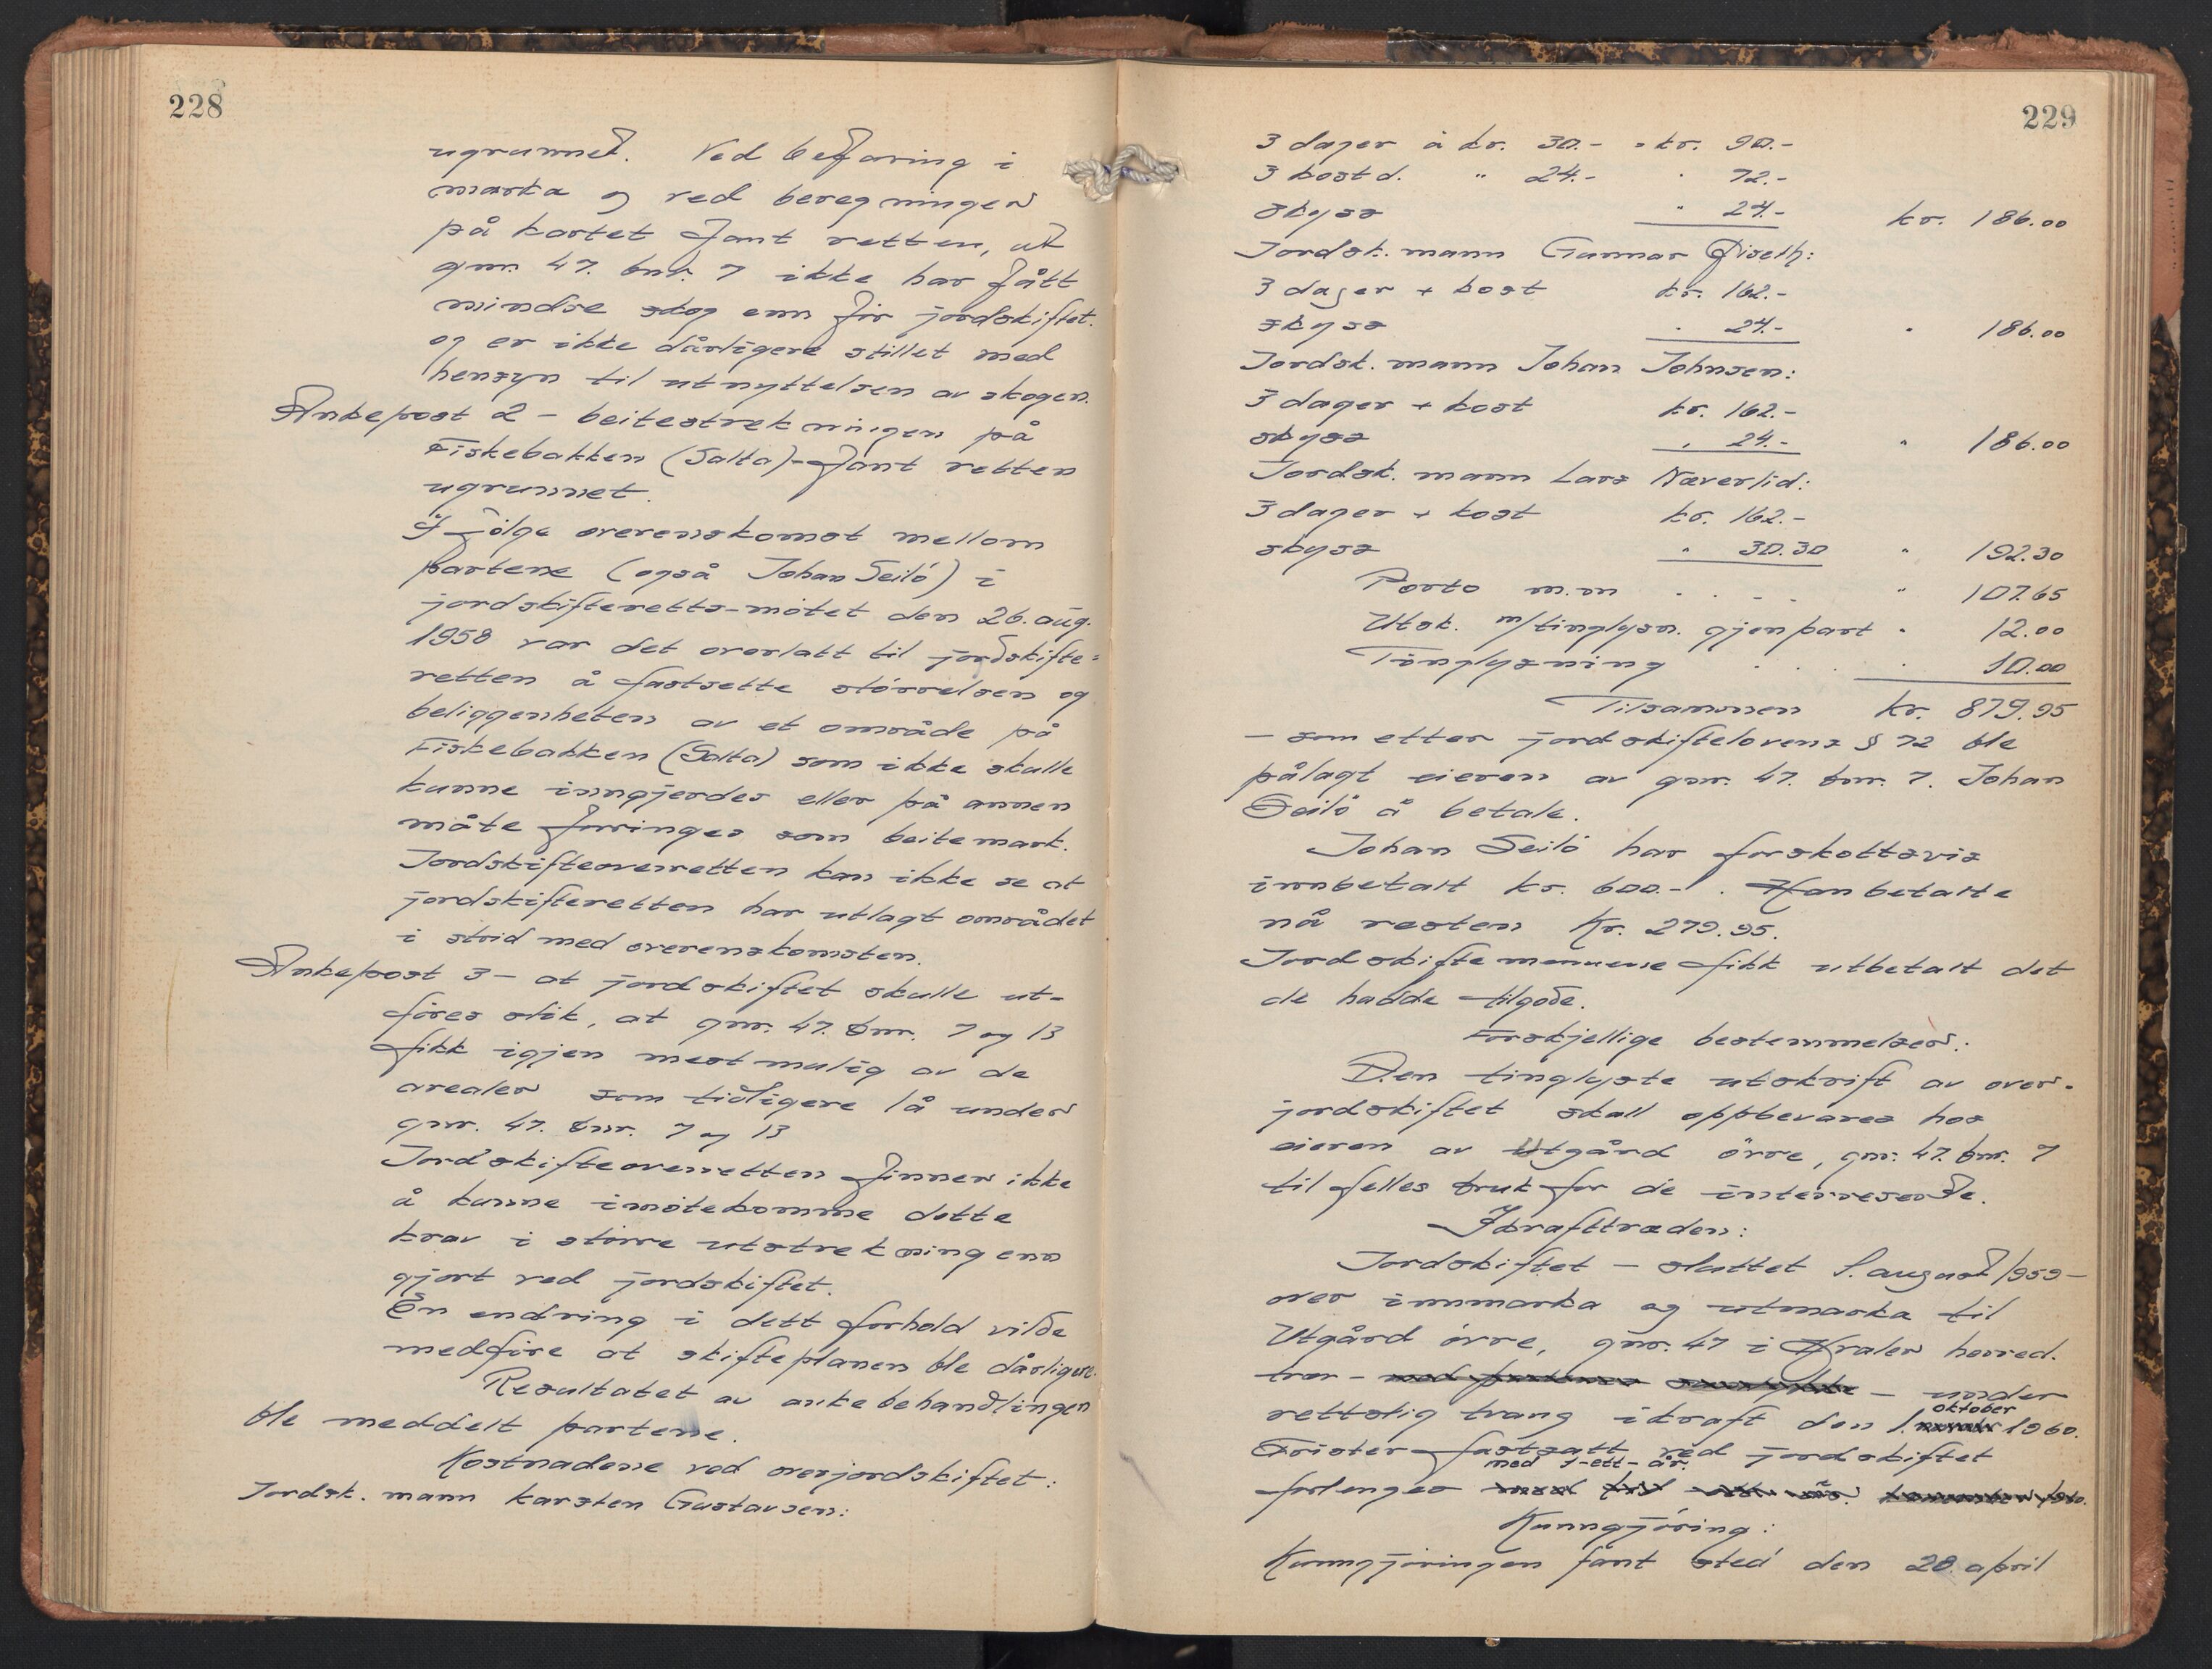 228
ugrunnet. Ved befaring i
marka og ved beregninger
på kartet fant retten, at
gnr. 47. bnr. 7 ikke har fått
mindre skog enn før jordskiftet.
og er ikke dårligere stillet med
hensyn til utnyttelsen av skogen.
Ankepost 2 - beitestrekningen på
Fiskebakken (Salta) - fant retten
ugrunnet.
I følge overenskomst mellom
partene (også Johan Seilö) i
jordskifteretts-møtet den 26. aug.
1958 var det overlatt til jordskifte=
retten å fastsette størrelsen og
beliggenheten av et område på
Fiskebakken (Salta) som ikke skulle
kunne inngjerdes eller på annen
måte forringes som beitemark.
Jordskifteoverretten kan ikke se at
jordskifteretten har utlagt området
i strid med overenskomsten.
Ankepost 3 - at jordskiftet skulle ut-
føres slik, at gnr. 47. bnr. 7 og 13
fikk igjen mest mulig av de
arealer som tidligere lå under
gnr. 47. bnr. 7 og 13
Jordskifteoverretten finner ikke
å kunne imøtekomme dette
krav i større utstrekning enn
gjort ved jordskiftet.
En endring i dett forhold vilde
medføre at skifteplanen ble dårligere.
Resultatet av ankebehandlingen
ble meddelt partene.
Kostnadene ved overjordskiftet:
Jordsk. mann Karsten Gustavsen:
229
3 dager à kr. 30.- = kr. 90.-
3 kostd. " 24.- " 72.-
skyss " 24.- kr. 186.00
Jordsk. mann Gunnar Diseth:
3 dager + kost kr. 162.-
skyss " 24.- " 186.00
Jordsk. mann Johan Johnsen:
3 dager + kost kr. 162.-
skyss " 24.- " 186.00
Jordsk. mann Lars Næverlid:
3 dager + kost kr. 162.-
skyss " 30.30 " 192.30
Porto m.m . . - - " 107.65
Utsk. m/tinglysn. gjenpart " 12.00
Tinglysning . . . . 10.00
Tilsammen kr. 879.95
- som etter jordskiftelovens § 72 ble
pålagt eieren av gnr. 47. bnr. 7. Johan
Seilö å betale.
Johan Seilö har forskottsvis
innbetalt kr. 600.-. Han betalte
nå resten kr. 279.95.
Jordskiftemennene fikk utbetalt det
de hadde tilgode.
Forskjellige bestemmelser:
Den tinglyste utskrift av over-
jordskiftet skall oppbevares hos
eieren av Utgård övre, gnr. 47. bnr. 7
til felles bruk for de interreserte.
Ikrafttræden:
Jordskiftet - sluttet 1. august 1959 -
over innmarka og utmarka til
Utgård övre, gnr. 47 i Hvaler herred.
trær - - under
rettslig tvang ikraft den 1. oktober 1960.
Frister fastsatt ved jordskiftet
forlenges med 1-ett-år.
Kunngjøring:
Kunngjøringen fant sted den 28. april